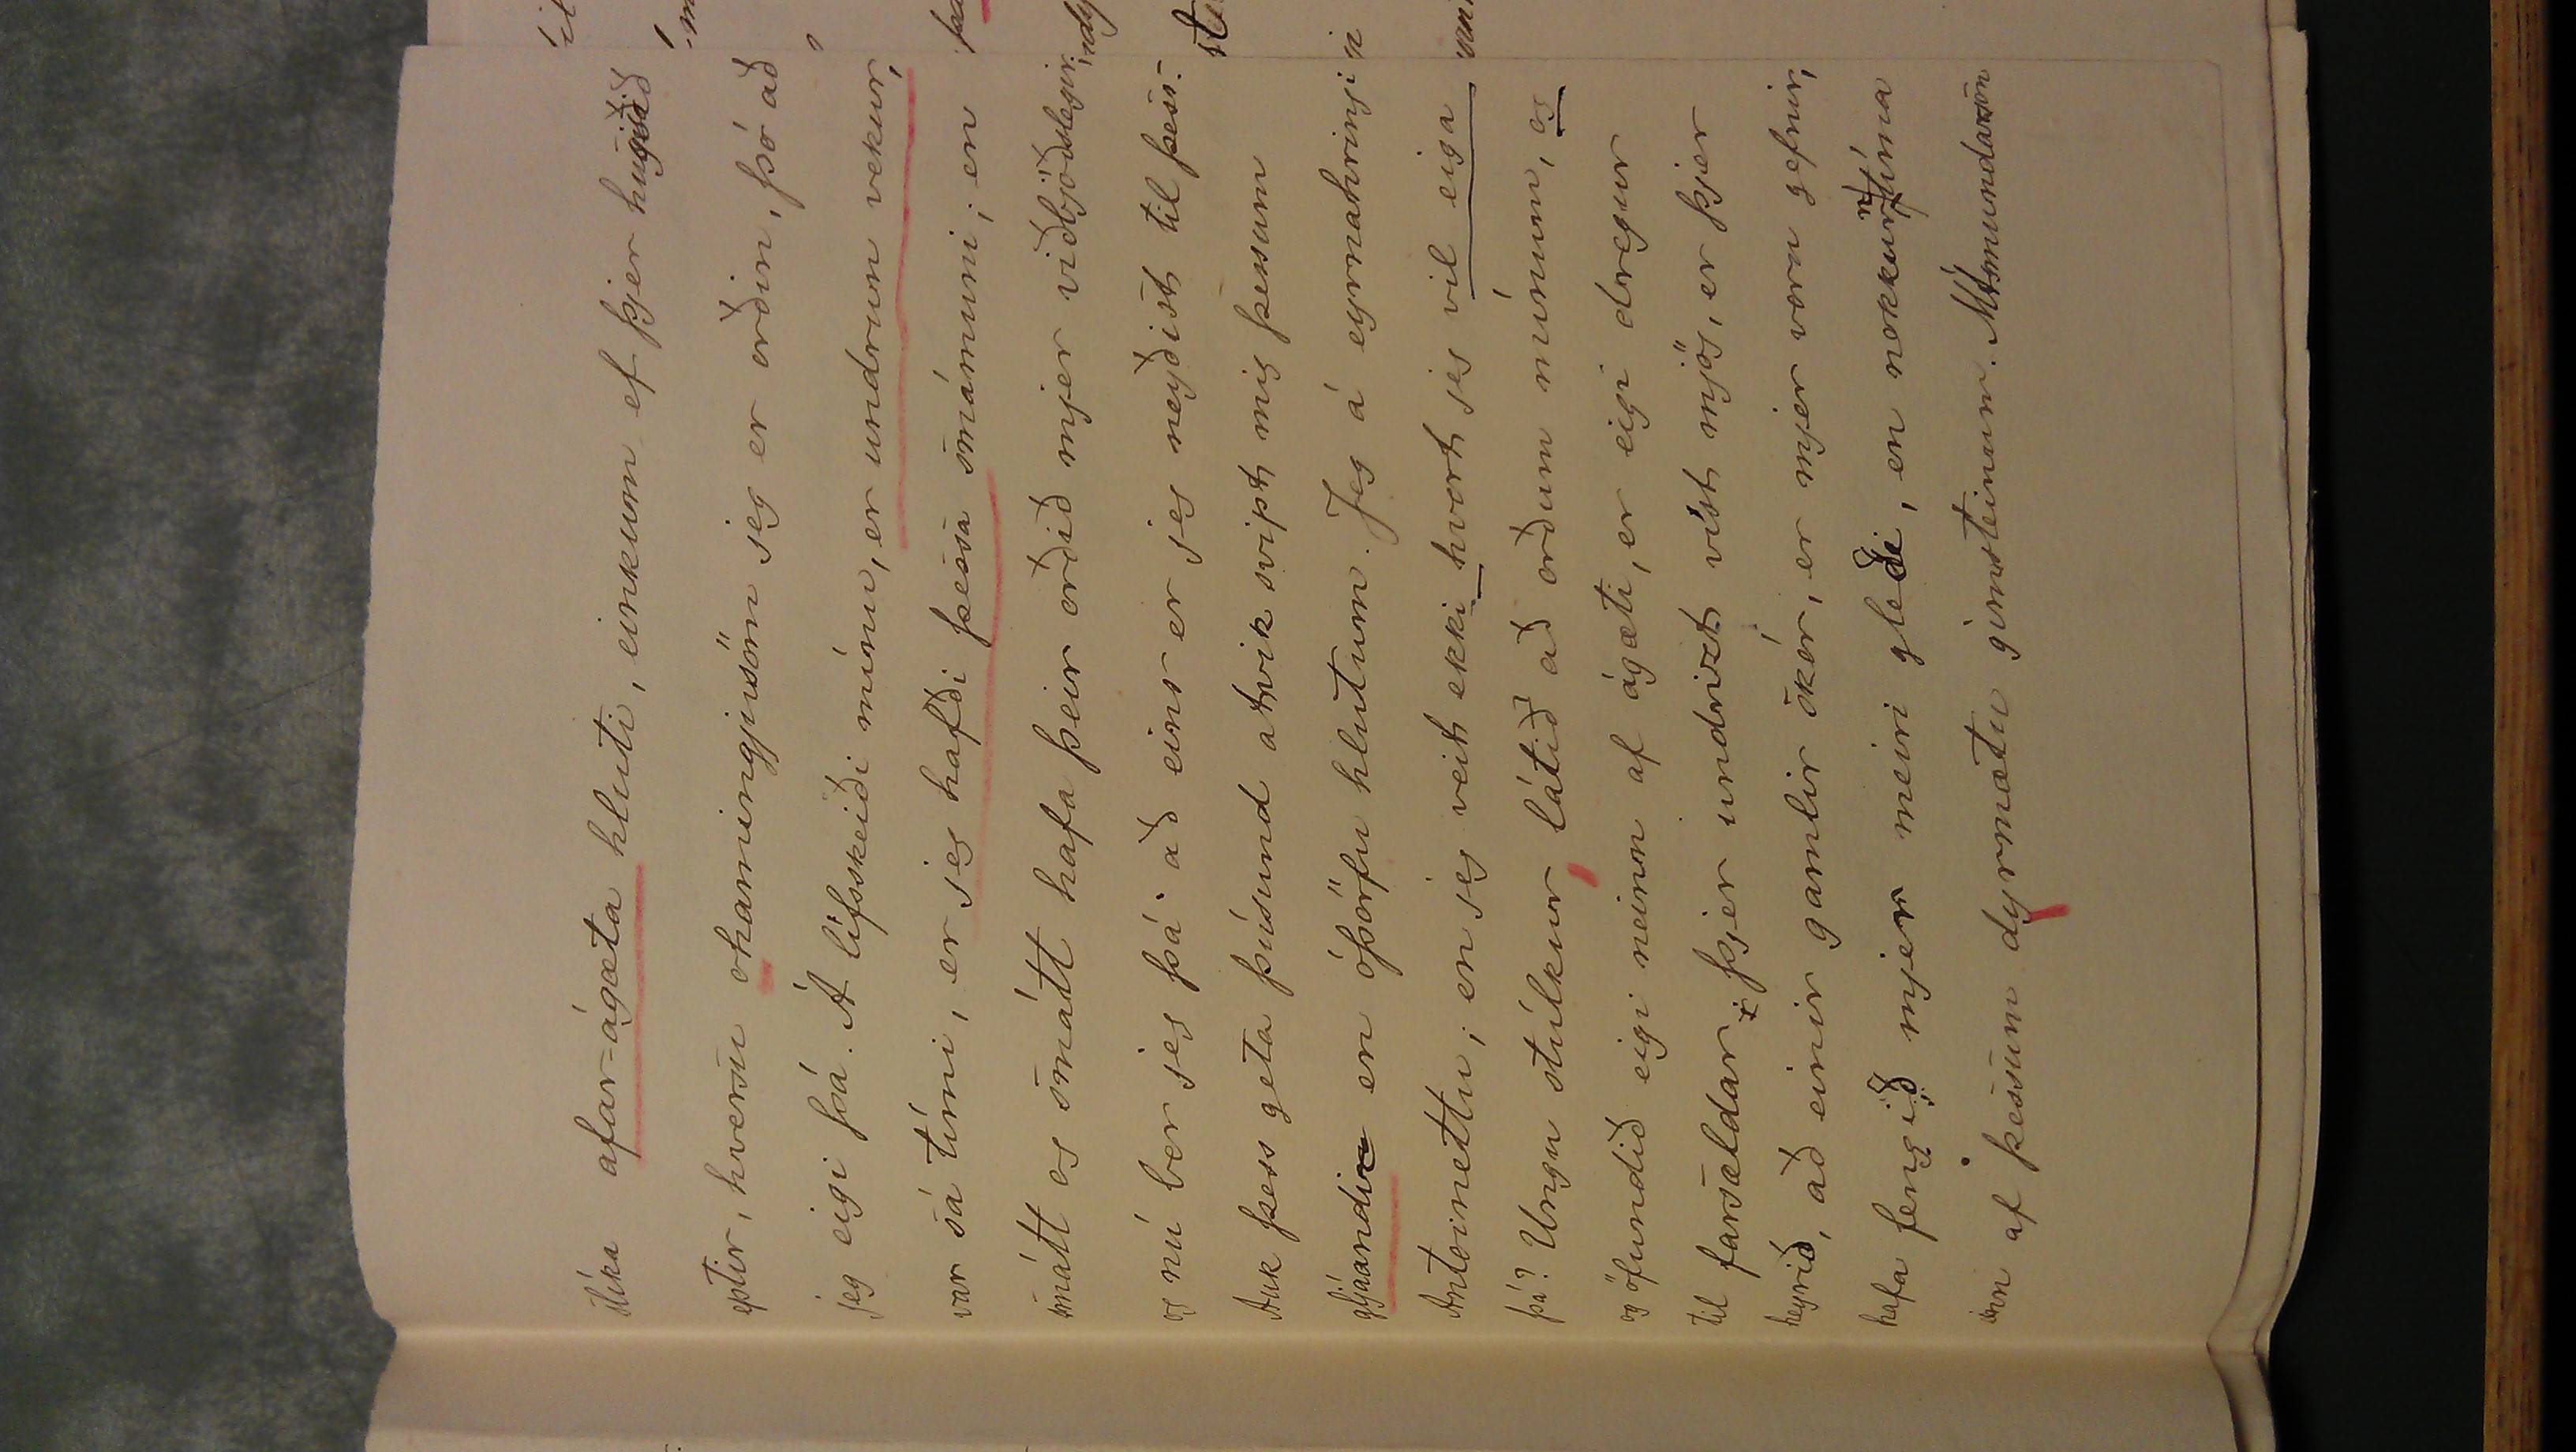 slíka afar-ágæta hluti, einkum ef þjer hugðuð
eptir, hversu ohamingjusöm jeg er orðin, þó að
jeg eigi þá. Á lífsskeiði mínu, er undrun vekur,
var sá tími, er jeg hafði þessa smámuni; en
smátt og smátt hafa þeir orðið mjer viðbjóðslegir,
og nú ber jeg þá að eins er jeg neyðist til þess.-
Auk þess geta þúsund atvik svipt mig þessum
gljáandi en óþörfu hlutum. Jeg á eyrnahringi
Antoinettu; en jeg veit ekki hvort jeg vil eiga
þá? Ungu stúlkur látið að orðum mínum, og
og öfundið eigi neinn af ágæti, er eigi dregur
til farsældar. Þjer undrizt víst mjög, er þjer
heyrið, að einir gamlir skór, er mjer voru gefnir,
hafa fengið mjer meiri gleði, en nokkurn tíma
inn af þessum dyrmætu gimsteinum. MÁsmundarson